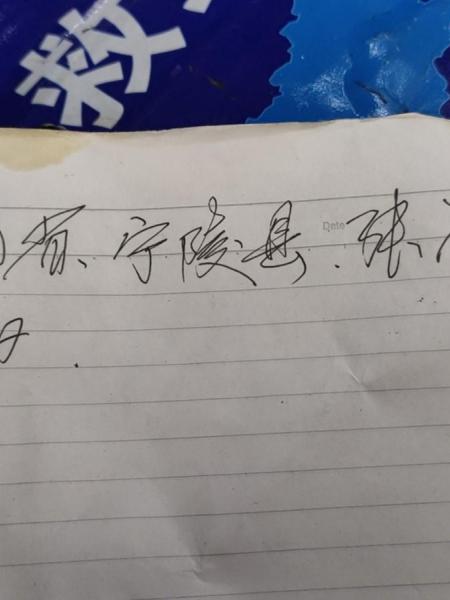 救
省、宁陵县、张
Date